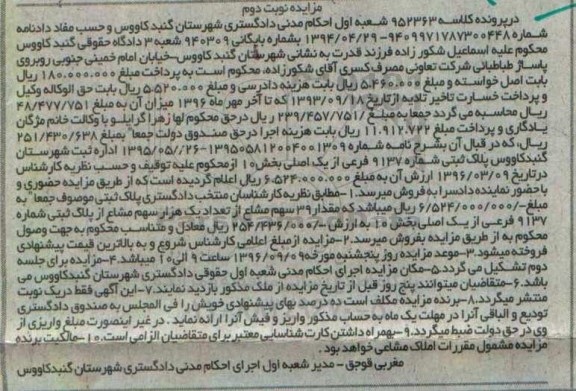 مزایده نوبت دوم
در پرونده کلاسه ۹۵۲۳۶۳ شعبه اول احکام مدنی دادگستری شهرستان گنبد کاووس و حسب مفاد دادنامه
شماره ۹۴۰۹۹۷۱۷۸۷۳۰۰۴۴۸-۱۳۹۴/۰۴/۲۹ بشماره بایگانی ۹۴۰۳۰۹ شعبه ۳ دادگاه حقوقی گنبد کاووس
محکوم علیه اسماعیل شکور زاده فرزند قدرت به نشانی شهرستان گنبد کاووس-خیابان امام خمینی جنوبی روبروی
پاساژ طباطبائی شرکت تعاونی مصرف کسری آقای شکورزاده، محکوم است به پرداخت مبلغ ۱۸۰.۰۰۰.۰۰۰ ریال
بابت اصل خواسته و مبلغ ۵.۴۶۰.۰۰۰ ریال بابت هزینه دادرسی و مبلغ ۵.۵۲۰.۰۰۰ ریال بابت حق الوکاله وکیل
و پرداخت خسارت تاخیر تادیه از تاریخ ۱۳۹۳/۰۹/۱۸ که تا آخر مهر ماه ۱۳۹۶ میزان آن به مبلغ ۴۸/۴۷۷/۷۵۱
ریال محاسبه می گردد جمعا به مبلغ ۲۳۹/۴۵۷/۷۵۱ ریال در حق محکوم لها زهرا گرایلو با وکالت خانم مژگان
یادگاری و پرداخت مبلغ ۱۱.۹۱۲.۷۲۲ ریال بابت هزینه اجرا در حق صندوق دولت جمعا به مبلغ ۲۵۱/۴۳۰/۶۳۸
ریال، که در قبال آن بشرح نامه شماره ۱۳۹۵۰۵۸۱۲۰۰۴۰۰۱۳۰۹-۱۳۹۵/۰۵/۲۶ اداره ثبت شهرستان
گنبدکاووس پلاک ثبتی شماره ۹۱۳۷ فرعی از یک اصلی بخش ۱۰ از محکوم علیه توقیف و حسب نظریه کارشناس
در تاریخ ۱۳۹۶/۰۳/۰۹ ارزش آن به مبلغ ۶.۵۲۴.۰۰۰.۰۰۰ ریال اعلام گردیده است که از طریق مزایده حضوری و
با حضور نماینده دادسرا به فروش میرسد.۱-مطابق نظریه کارشناسان منتخب دادگستری پلاک ثبتی موصوف جمعا به
مبلغ ۶/۵۲۴/۰۰۰/۰۰۰/- ریال میباشد که مقدار ۳۹ سهم مشاع از تعداد یک هزار سهم مشاع از پلاک ثبتی شماره
۹۱۳۷ فرعی از یک اصلی بخش ۱۰ به ارزش ۲۵۴/۴۳۶/۰۰۰/- ریال معادل و متناسب محکوم به جهت وصول
محکوم به از طریق مزایده بفروش میرسد.۲-مزایده از مبلغ اعلامی کارشناس شروع و به بالاترین قیمت پیشنهادی
فروخته میشود.۳-موعد مزایده روز پنجشنبه مورخه ۱۳۹۶/۰۹/۰۹ ساعت ۹ الی ۱۰ میباشد.۴-مزایده برای جلسه
دوم تشکیل می گردد.۵-مکان مزایده اجرای احکام مدنی شعبه اول حقوقی دادگستری شهرستان گنبدکاووس می
باشد.۶-متقاضیان میتوانند پنج روز قبل از تاریخ مزایده از ملک مذکور بازدید نمایند.۷-این آگهی فقط در یک نوبت
منتشر میگردد.۸-برنده مزایده مکلف است ده درصد بهای پیشنهادی خویش را فی المجلس به صندوق دادگستری
تودیع و الباقی آنرا در مهلت یک ماه به حساب مذکور واریز و فیش آنرا ارائه نماید. در غیر اینصورت مبلغ واریزی از
وی در حق دولت ضبط میگردد.۹-بهمراه داشتن کارت شناسایی معتبر برای متقاضیان الزامی است.۱۰-مالکیت برنده
مزایده مشمول مقررات املاک مشاعی خواهد بود.
مغربی قوجق - مدیر شعبه اول اجرای احکام مدنی دادگستری شهرستان گنبدکاووس